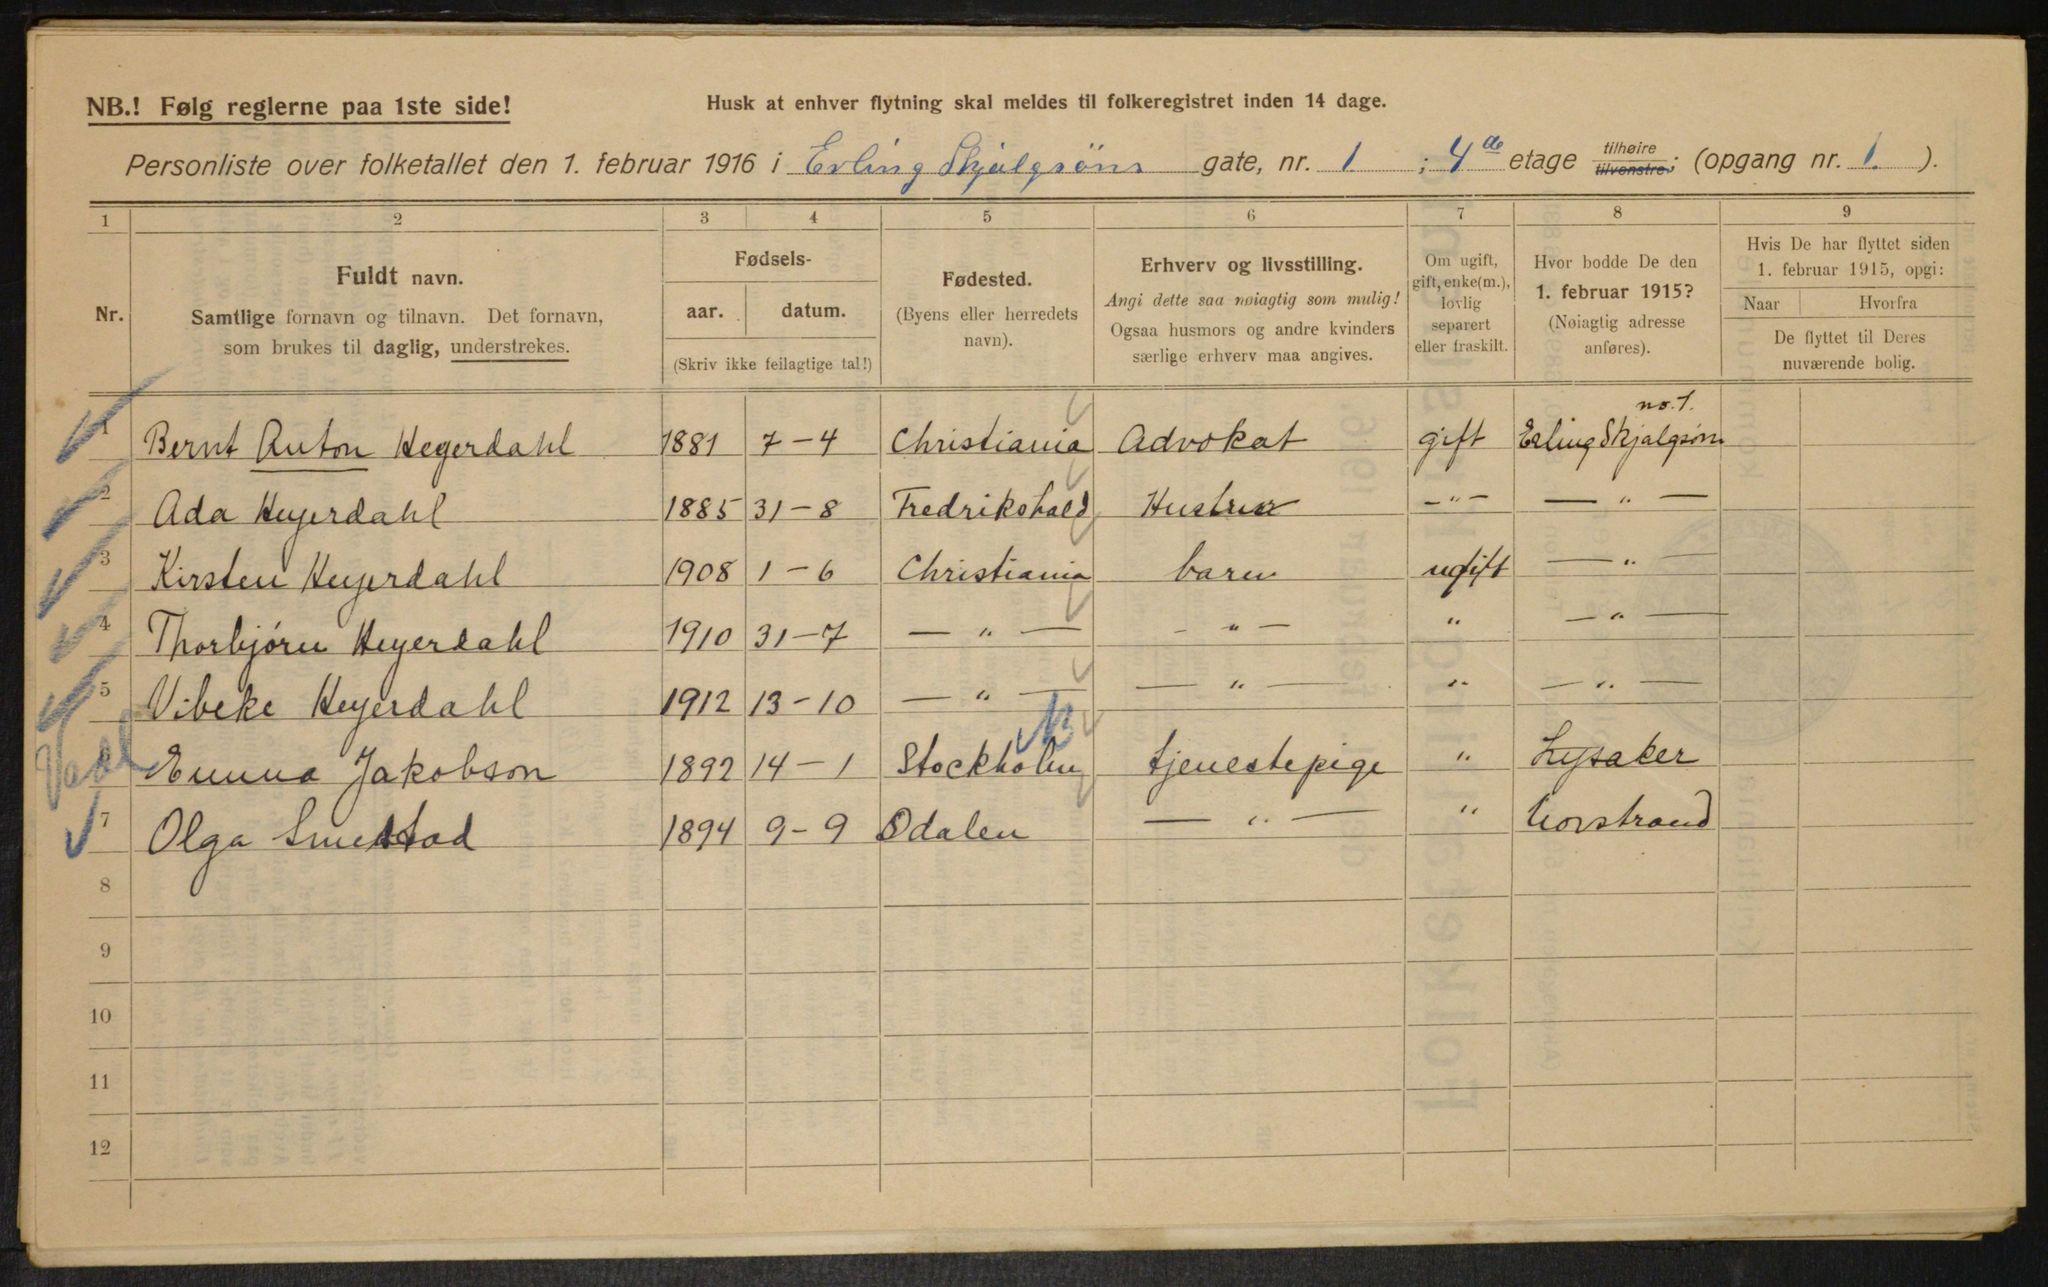 NB.! Følg reglerne paa 1ste side!
Husk at enhver flytning skal meldes til folkeregistret inden 14 dage.
Personliste over folketallet den 1. februar 1916 i Erling Skjalgsöns gate, nr. 1 ; 4de etage tilhøire tilvenstre; (opgang nr. 1. ).
1 2 3 4 5 6 7 8 9
Nr.
Fuldt navn.
Samtlige fornavn og tilnavn. Det fornavn,
som brukes til daglig, understrekes.
Fødsels-
aar. datum.
(Skriv ikke feilagtige tal!)
Fødested.
(Byens eller herredets
navn).
Erhverv og livsstilling.
Angi dette saa nøiagtig som mulig!
Ogsaa husmors og andre kvinders
særlige erhverv maa angives.
Om ugift,
gift, enke(m.),
lovlig
separert
eller fraskilt.
Hvor bodde De den
1. februar 1915?
(Nøiagtig adresse
anføres).
Hvis De har flyttet siden
1. februar 1915, opgi:
Naar Hvorfra
De flyttet til Deres
nuværende bolig.
no. 1.
1 Bernt Anton Heyerdahl 1881 7-4 Christiania Advokat gift Erling Skjalgsøn
2 Ada Heyerdahl 1885 31-8 Fredrikshald Hustru — " — — " —
3 Kirsten Heyerdahl 1908 1-6 Christiania barn ugift — " —
4 Thorbjørn Heyerdahl 1910 31-7 — " — — " — " — " —
5 Vibeke Heyerdahl 1912 13-10 — " — — " — " — " —
6 Emma Jakobson 1892 14-1 Stockholm tjenestepige " Lysaker
7 Olga Smedstad 1894 9-9 Odalen — " — " Norstrand
8
9
10
11
12